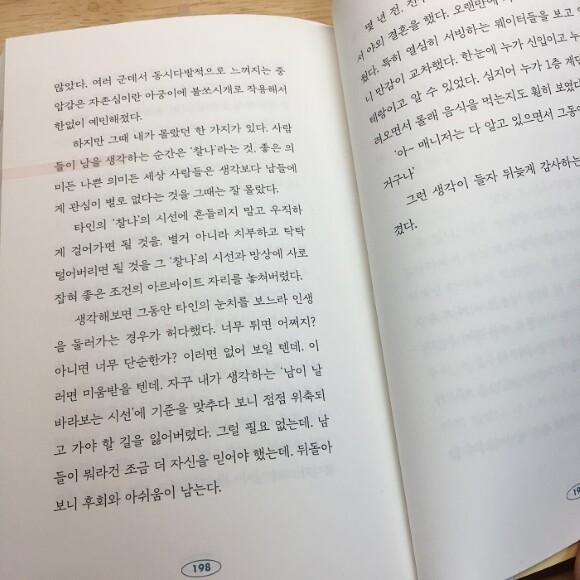 많았다. 여러 군데서 동시다발적으로 느껴지는 중
압감은 자존심이란 아궁이에 불쏘시개로 작용해서
한없이 예민해졌다.
하지만 그때 내가 몰랐던 한 가지가 있다. 사람
들이 남을 생각하는 순간은 '찰나'라는 것. 좋은 의
미든 나쁜 의미든 세상 사람들은 생각보다 남들에
게 관심이 별로 없다는 것을 그때는 잘 몰랐다.
타인의 '찰나'의 시선에 흔들리지 말고 우직하
게 걸어가면 될 것을. 별거 아니라 치부하고 탁탁
털어버리면 될 것을 그 '찰나'의 시선과 망상에 사로
잡혀 좋은 조건의 아르바이트 자리를 놓쳐버렸다.
생각해보면 그동안 타인의 눈치를 보느라 인생
을 둘러가는 경우가 허다했다. 너무 튀면 어쩌지?
아니면 너무 단순한가? 이러면 없어 보일 텐데. 이
러면 미움받을 텐데. 자꾸 내가 생각하는 '남이 날
바라보는 시선'에 기준을 맞추다 보니 점점 위축되
고 가야 할 길을 잃어버렸다. 그럴 필요 없는데. 남
들이 뭐라건 조금 더 자신을 믿어야 했는데. 뒤돌아
보니 후회와 아쉬움이 남는다.
198
몇 년 전,
서 야외 결혼을 했다. 오랜만에
웠다. 특히 열심히 서빙하는 웨이터들을 보고
니 만감이 교차했다. 한눈에 누가 신입이고 누
테랑이고 알 수 있었다. 심지어 누가 1층 계단
려오면서 몰래 음식을 먹는지도 훤히 보였다
'아~ 매니저는 다 알고 있으면서 그동
거구나'
그런 생각이 들자 뒤늦게 감사하는
겼다.